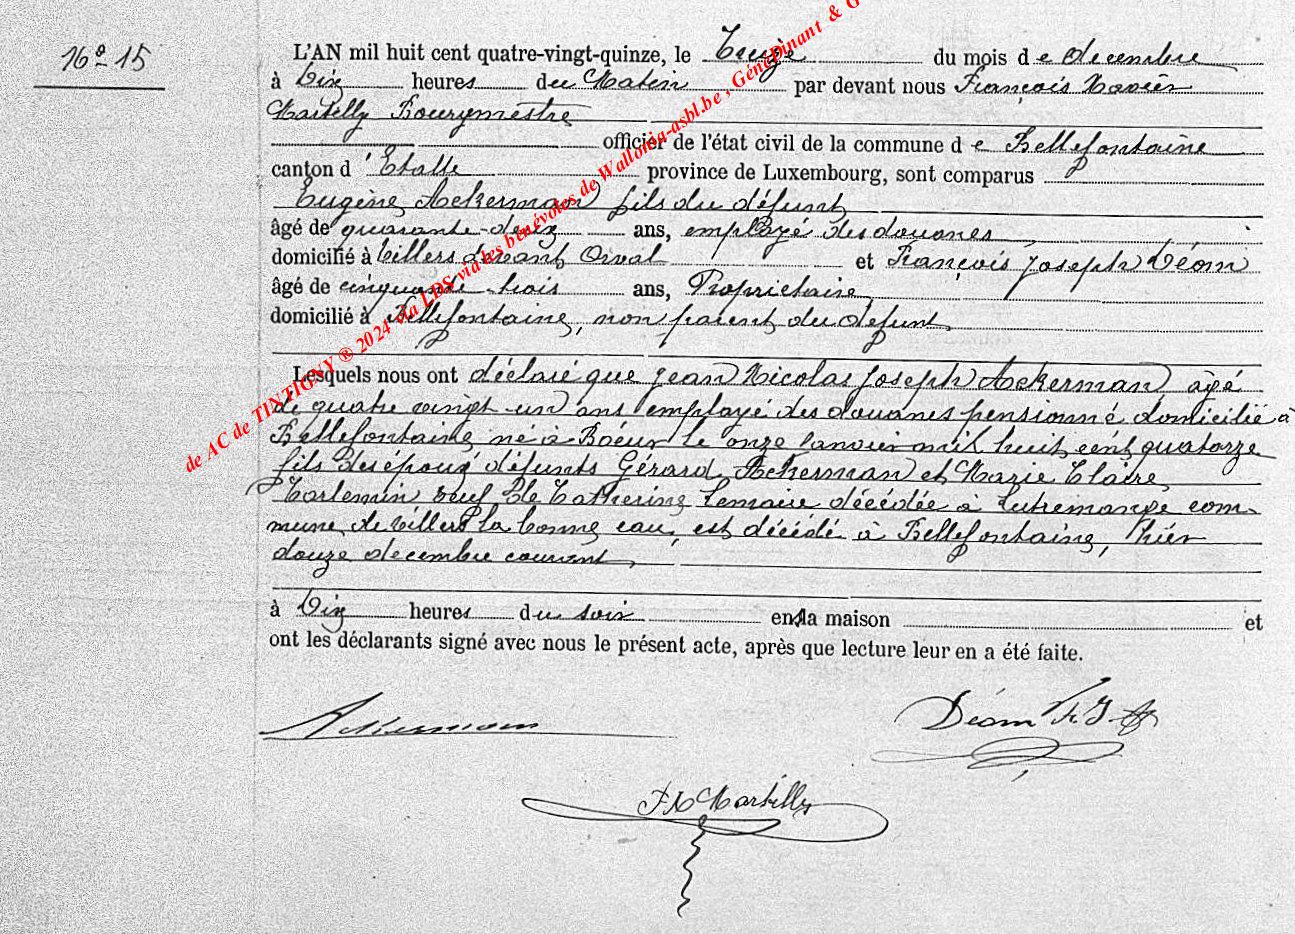 Nº 15
L'AN mil huit cent quatre-vingt-quinze, le Treize du mois de decembre
à Dix heures du Matin par devant nous François Xavier
Martilly Bourgmestre
officier de l'état civil de la commune de Bellefontaine
canton d'Etalle province de Luxembourg, sont comparus
Eugène Ackerman fils du défunt
âgé de quarante-deux ans, employé des douanes
domicilié à Villers devant Orval et François Joseph Déom
âgé de cinquante-trois ans, Propriétaire
domicilié à Bellefontaine, non parent du defunt
Lesquels nous ont déclaré que Jean Nicolas Joseph Ackerman âgé
de quatre vingt-un ans employé des douanes pensionné domicilié à
Bellefontaine né à Boeur le onze Janvier mil huit cent quatorze
fils des époux défunts Gérard Ackerman et Marie Claire
veuf de Catherine Lemaire décédée à Lutremange com-
mune de Villers la bonne eau, est décédé à Bellefontaine, hier
douze decembre courant,
à Dix heures du soir en sa maison et
ont les déclarants signé avec nous le présent acte, après que lecture leur en a été faite.
Ackerman
Déom F. J.
F X Martilly
de AC de TINTIGNY ® 2024 via LDS via les bénévoles de Wallonia-asbl.be, GénéDinant & G